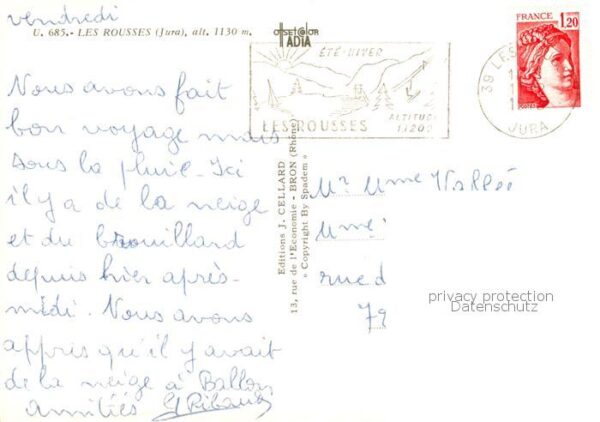 vendredi
U. 685.- LES ROUSSES (Jura), alt. 1130 m.
OFFSET COLOR
IADIA
Nous avons fait
bon voyage mais
sous la pluie. Ici
il y a de la neige
et du brouillard
depuis hier après-
midi. Nous avons
appris qu'il y avait
de la neige à Ballon
amitiés G Ribaud
Editions J. CELLARD
13, rue de l'Economie - BRON (Rhône)
« Copyright By Spadem »
ÉTÉ-HIVER
LES ROUSSES
ALTITUDE
1120
39 LES
JURA
FRANCE
1,20
POSTES
Mr Mme Vallée
rue d
79
privacy protection
Datenschutz